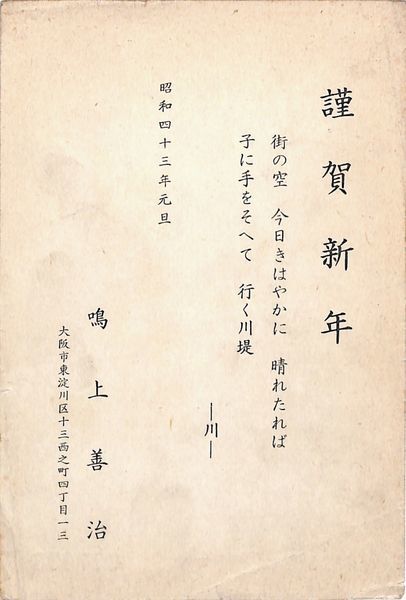 謹賀新年
街の空　今日きはやかに　晴れたれば
子に手をそへて　行く川堤
―川―
昭和四十三年元旦
鳴上善治
大阪市東淀川区十三西之町四丁目一三